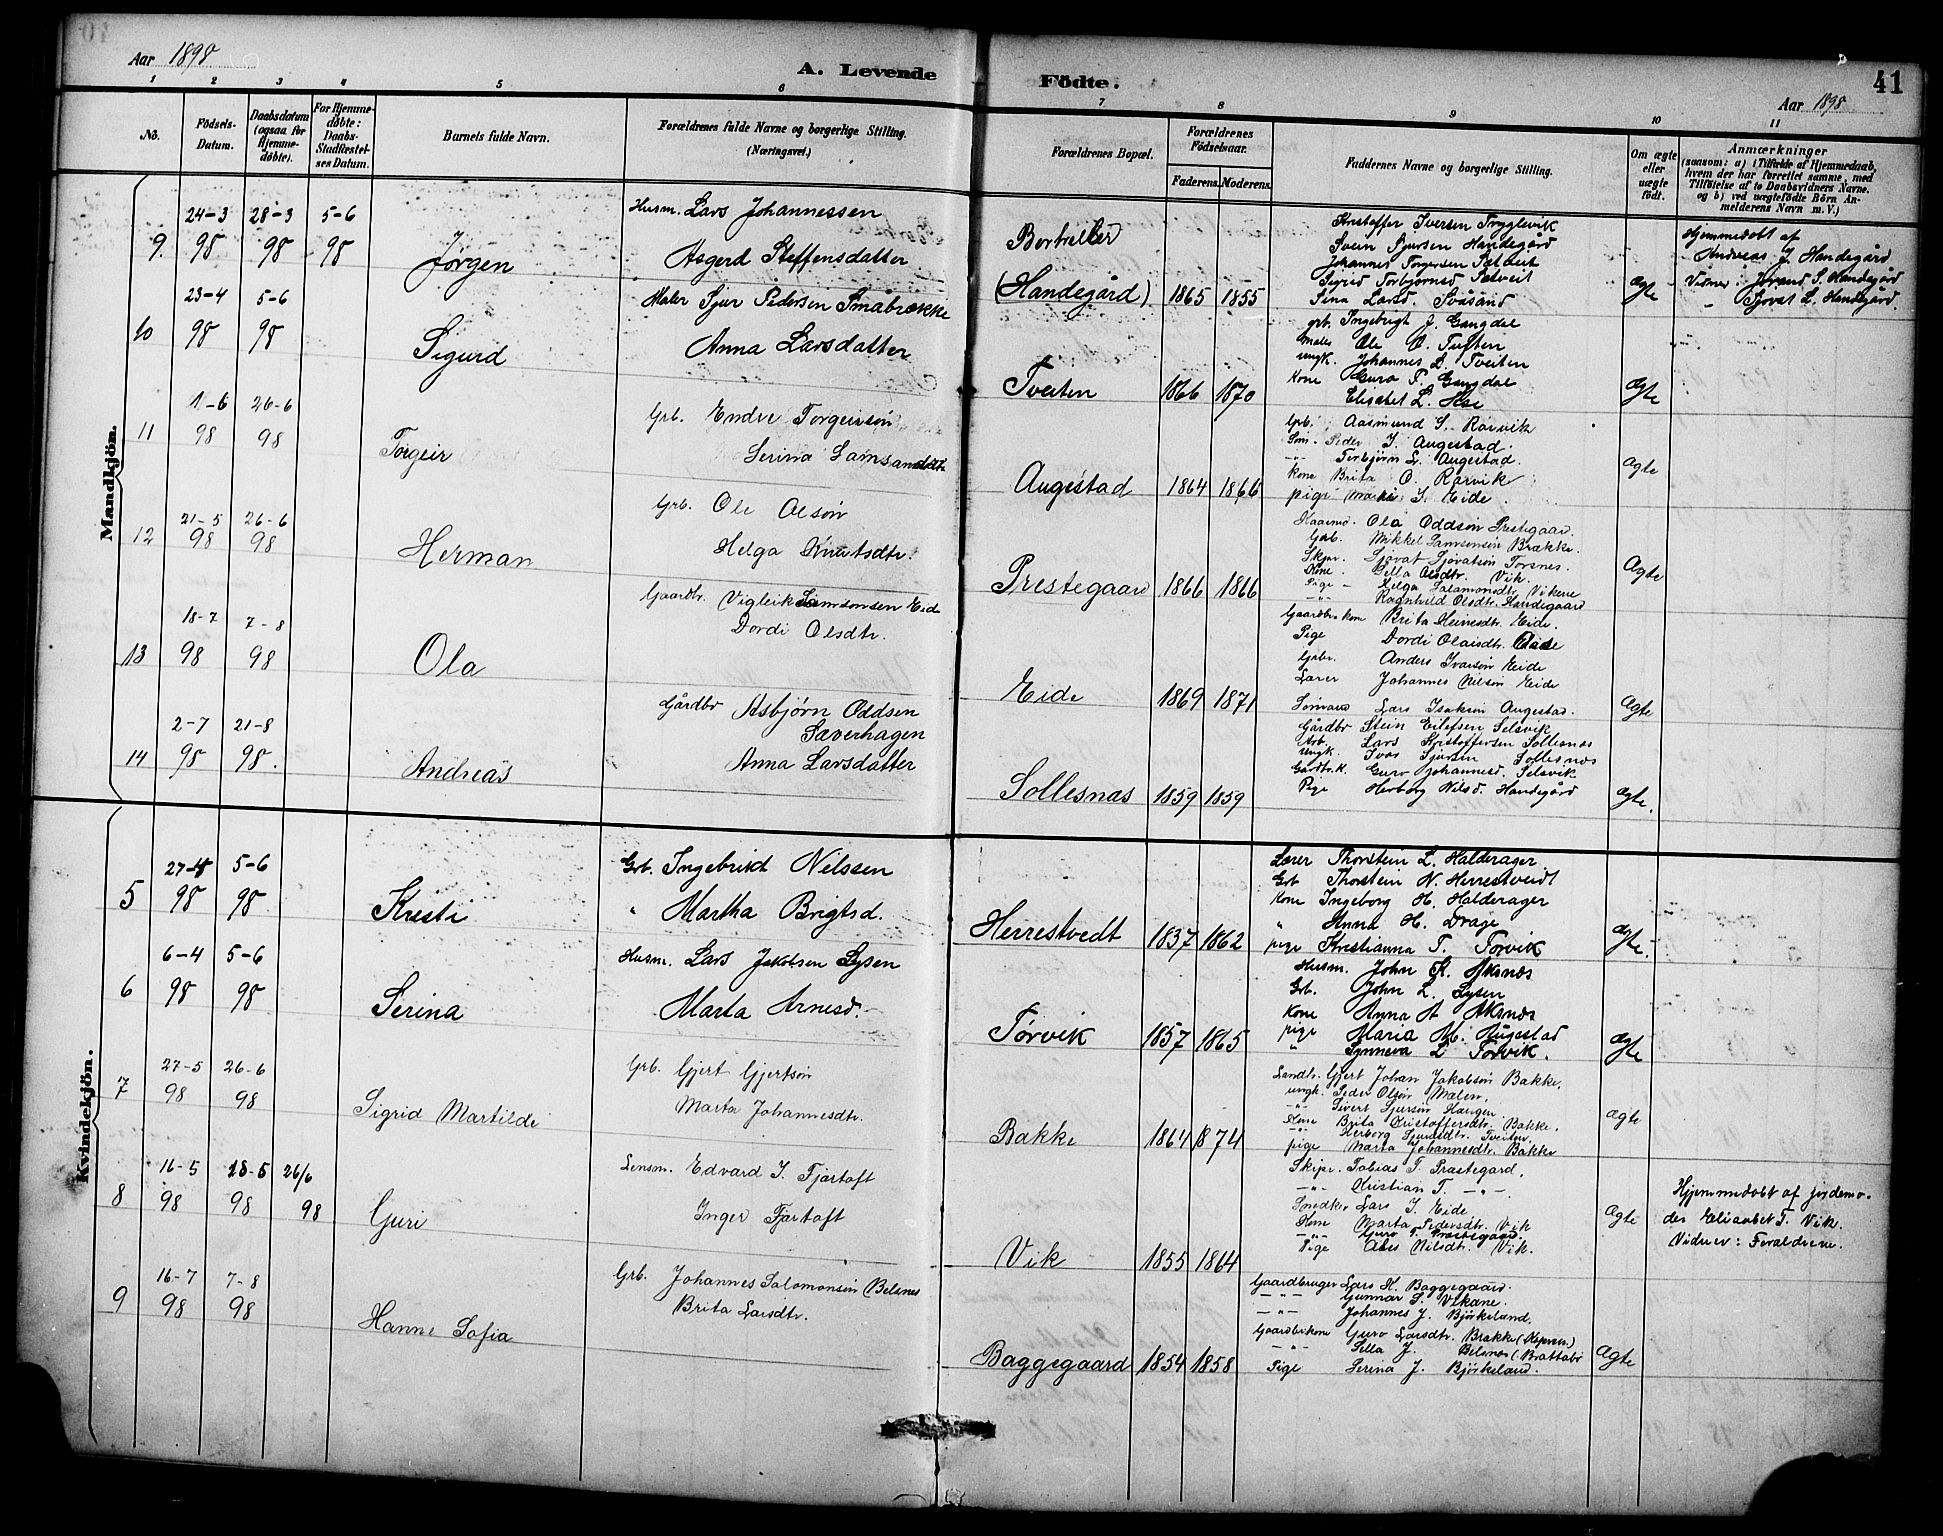 Aar 1898
A. Levende Födte.
41
Aar 1898
1 2 3 4 5 6 7 8 9 10 11
No.
Födsels-Datum.
Daabsdatum (ogsaa for Hjemme-døbte).
For Hjemme-døbte: Daabs-Stadfæstel-ses Datum.
Barnets fulde Navn.
Forældrenes fulde Navne og borgerlige Stilling. (Næringsvei.)
Forældrenes Bopæl.
Forældrenes Fødselsaar.
Faderens. Moderens.
Faddernes Navne og borgerlige Stilling.
Om ægte eller uægte født.
Anmærkninger
(saasom: a) i Tilfælde af Hjemmedaab,
hvem der har forrettet samme, med
Tilføielse af to Daabsvidners Navne.
og b) ved uægtefødte Börn An-
melderens Navn m. V.)
Mandkjön.
9. 24-3 98 28-3 98 5-6 98 Jørgen
Husm. Lars Johannessen
Asgerd Steffensdatter
(Handegård) 1865 1855
Kristoffer Iversen
Svein Sjursen Handegård
Johannes Torgersen
Sigrid Torbjørnsd
Sina Larsd.
Ægte
Hjemmedøbt af
Andreas J. Handegård
Vidner: S. Handegård
" L. Handegård.
10 23-4 98 5-6 98 Sigurd
Maler Sjur Pedersen Småbrække
Anna Larsdatter
Tveiten 1866 1870
grb. Ingebrigt J. Gangdal
Maler Ole O. Tuften
ungk. Johannes L. Tveiten
Kone Guro P. Gangdal
Elisabet L.
Ægte
11 1-6 98 26-6 98 Torgeir
Grb. Endre Torgeirsøn
Serina Samsonsdtr
Augestad 1864 1866
Grb. Aasmund S. Rørvik
Søn. Peder J. Augestad.
-"- Torbjørn L. Augestad.
Kone Brita O. Rørvik
pige S. Eide.
Ægte
12 21-5 98 26-6 98 Herman
Grb. Ole Olsøn
Helga Knutsdtr.
Prestegaard 1866 1866
Kaarmd. Ola Oddsøn Prestegaard.
Grb. Mikkel Samsonsøn Brække.
Skpr. Sjovat Sjovatsøn Torsnes.
Kone. Sella Olsdtr. Vik.
Pige - Helga Salamonsdtr. Vikene
-"- Ragnhild Olsdtr. Handegaard
Ægte
13 18-7 98 7-8 98 Ola
Gaardbr. Vigleik Samsonsen Eide
Dordi Olsdtr.
Eide 1869 1871
Gaardbr. kone Brita Heinesdtr. Eide.
Pige Dordi Olaisdtr. Eide
Grbr. Anders Ivarsøn Eide
Lærer Johannes Nilsøn Eide
Sømand Lars Isaksen Augestad.
Ægte
14 2-7 98 21-8 98. Andreas
Gårdbr Asbjørn Oddsen
Saverhagen
Anna Larsdatter
Sollesnæs 1859 1859
Gårdbr Stein Eilefsen Selsvik
Arb. Lars Kristoffersen Sollesnæs
Ungk. Ivar Sjursen Sollesnæs
Gårdbr.k. Guro Johannesd. Selsvik
Pige Herborg Nilsd. Handegård
Ægte.
Kvindekjön.
5 27-4 98 5-6 98 Kristi
Grb. Ingebrikt Nilssen
" Martha Brigtsd.
Herrestvedt 1837 1862
Lærer Thorstein L. Halderager
Grb Thorstein N. Herrestveidt
Kone Ingeborg H. Halderager
" Anna H. Drage
pige Kristianna T. Tørvik
Ægte.
6 6-4 98 5-6 98 Serina
Husm. Lars Jakobsen Lysen
Marta Arnesd.
Tørvik 1857 1865
Husm. John K. Aksnæs
Grb. John L. Lysen
Kone Anna A Aksnæs
pige Maria M. Augestad
" Synneva L Tørvik.
Ægte
7 27-5 98 26-6 98 Sigrid Martilde
Grb. Gjert Gjertsøn
Marta Johannesdtr.
Bakke 1864 1874
Landh. Gjert Johan Jakobsøn Bakke.
ungk. Peder Olsøn Malen.
-"- Sivert Sjursøn Haugen
Kone Brita Kristoffersdtr. Bakke.
-"- Herborg Sjursdtr. Tveiten.
pige Marta Johannesdtr. Bakke
Ægte
8 16-5 98 18-5 98 26/6 98 Guri
Lensm. Edvard I. Fjørtoft
Inger Fjørtoft
Vik 1855 1864
Skipr. Tobias T. Præstegard.
-"- Kristian T. -"-
Lars J. Eide
Kone Marta Pedersdtr. Vik
-"- Guro T. Præstegaard.
Pige Nilsdtr. Vik.
Ægte
Hjemmedøbt af jordemo-
der Elisabet T. Vik.
Vidner: Forældrene.
9 16-7 98 7-8 98 Hanne Sofia
Grb. Johannes Salomonsøn Belsnes
Brita Larsdtr.
Baggegaard 1854 1858
Gaardbruger Lars H. Baggegaard.
-"- Gunnar S. Vikane.
-"- Johannes J. Bjørkeland.
Gaardbr.kone Guro Larsdtr. Brække
-"- Sella J. Belsnes (Brattabø
Pige Serina J. Bjørkeland.
Ægte